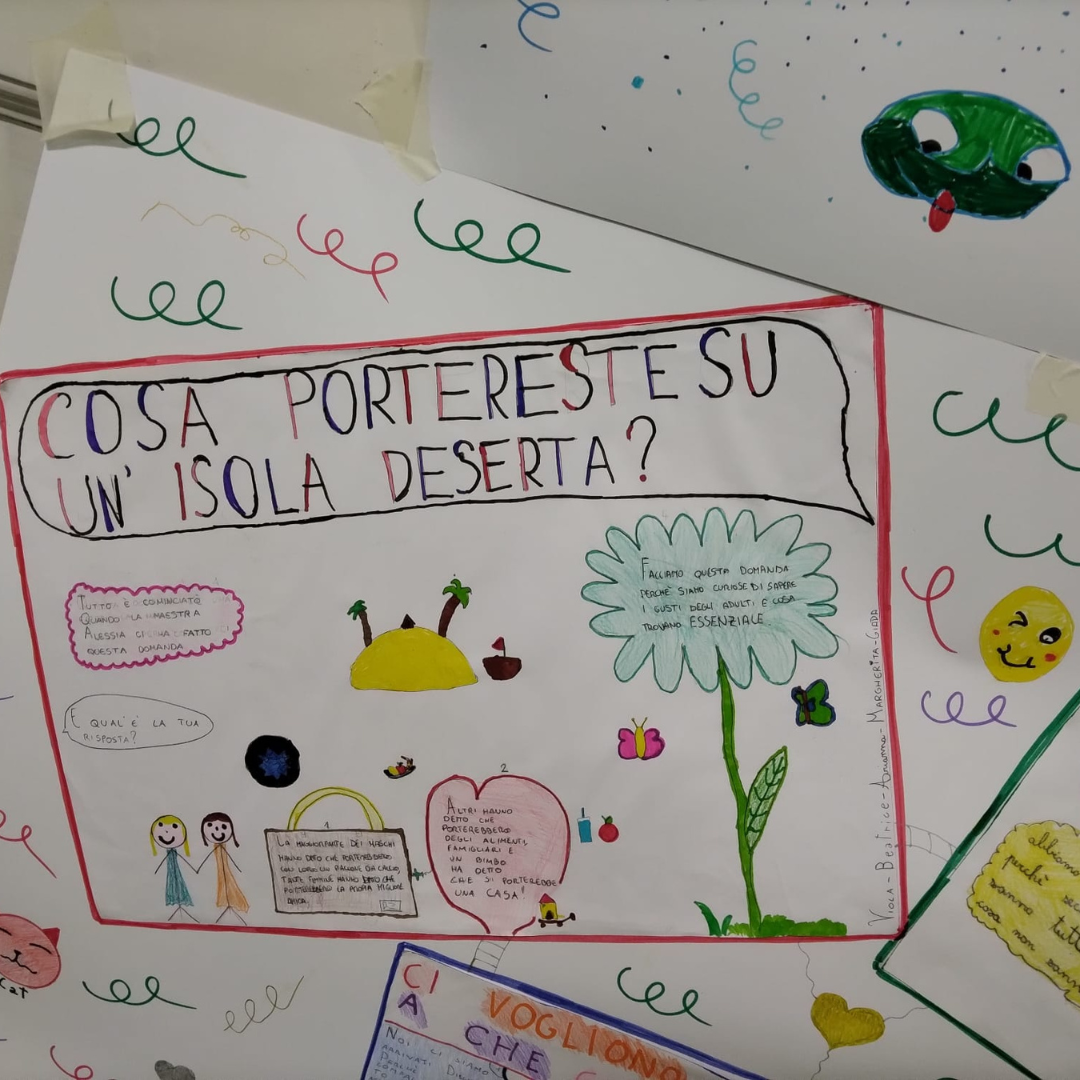 COSA PORTERESTE SU
UN' ISOLA DESERTA?
TUTTO È COMINCIATO
QUANDO LA MAESTRA
ALESSIA CI HA FATTO
QUESTA DOMANDA
E QUAL'È LA TUA
RISPOSTA?
FACCIAMO QUESTA DOMANDA
PERCHÈ SIAMO CURIOSE DI SAPERE
I GUSTI DEGLI ADULTI E COSA
TROVANO ESSENZIALE
1
LA MAGGIORPARTE DEI MASCHI
HANNO DETTO CHE PORTEREBBERO
CON LORO UN PALLONE DA CALCIO,
TANTE FEMMINE HANNO DETTO CHE
PORTEREBBERO LA PROPRIA MIGLIORE
AMICA.
2
ALTRI HANNO
DETTO CHE
PORTEREBBERO
DEGLI ALIMENTI,
FAMIGLIARI E
UN BIMBO
HA DETTO
CHE SI PORTEREBBE
UNA CASA!
VIOLA-BEATRICE-ARIANNA-MARGHERITA-GIADA
cat
CI VOGLIONO
A CHE
NOI CI SIAMO
abbiamo
perchè se
sanno tutt
cosa non sann